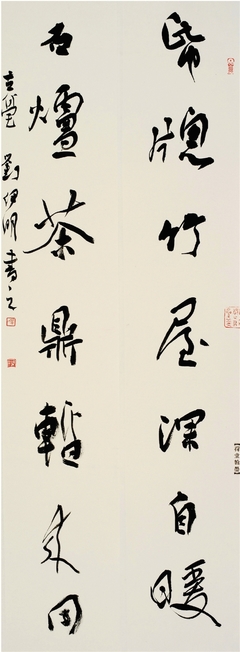 帋牕竹屋深自暖
石爐茶鼎暫來同
劉伊明書之